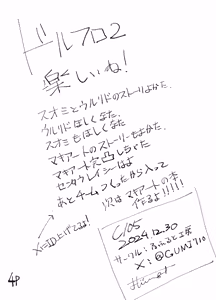 ドルフロ2
楽しいね!
スオミとウルリドのストーリよかた。
ウルリドほしくなた。
スオミもほしくなた。
マキアートのストーリーもよかた。
マキアート完凸しちゃた
センタウレイシーはよ
あとチームつくったから入って
次はマキアートの本
作るよ!!!!
X→ID上げてるよ!
C105
2024.12.30
サークル:
X:@GUMI710
4P